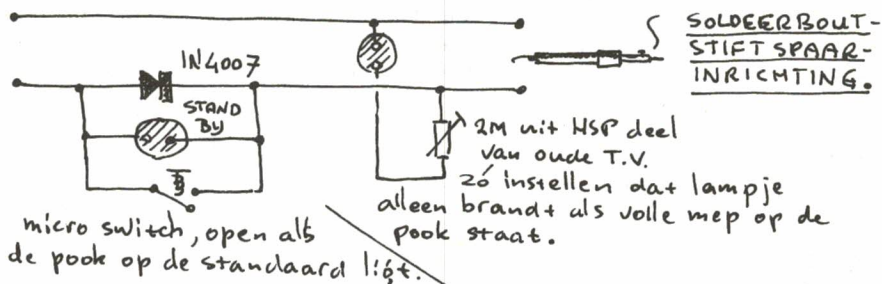 SOLDEERBOUT-
STIFT SPAAR-
INRICHTING.
1N4007
STAND
BY
2M uit HSP deel
van oude T.V.
zó instellen dat lampje
alleen brandt als volle mep op de
pook staat.
micro switch, open als
de pook op de standaard ligt.